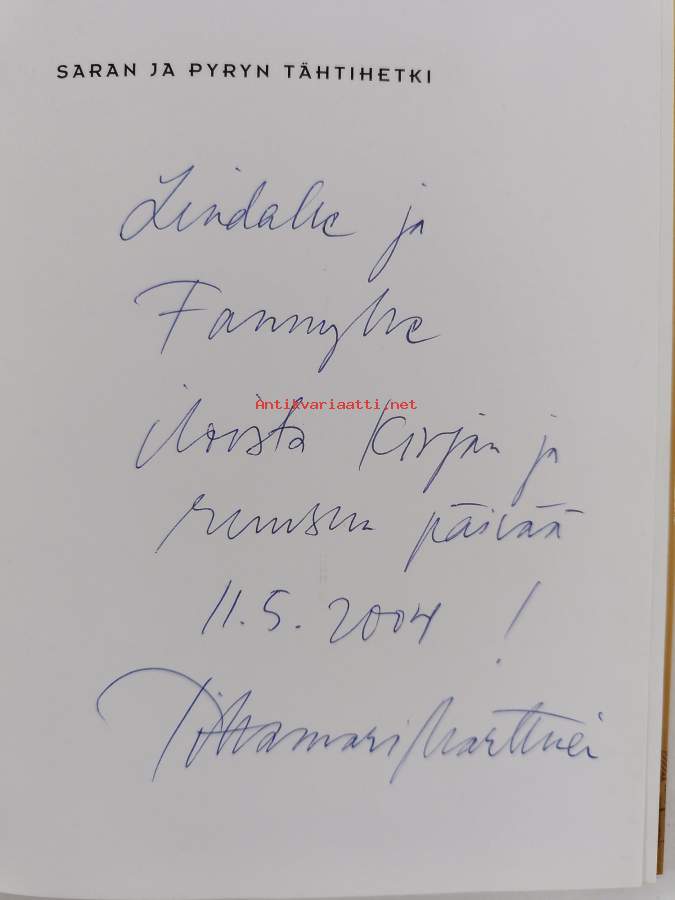 SARAN JA PYRYN TÄHTIHETKI
Lindalle ja
Fannylle
Antikvariaatti.net
iloista Kirjan ja
ruusun päivää
11.5.2004 !